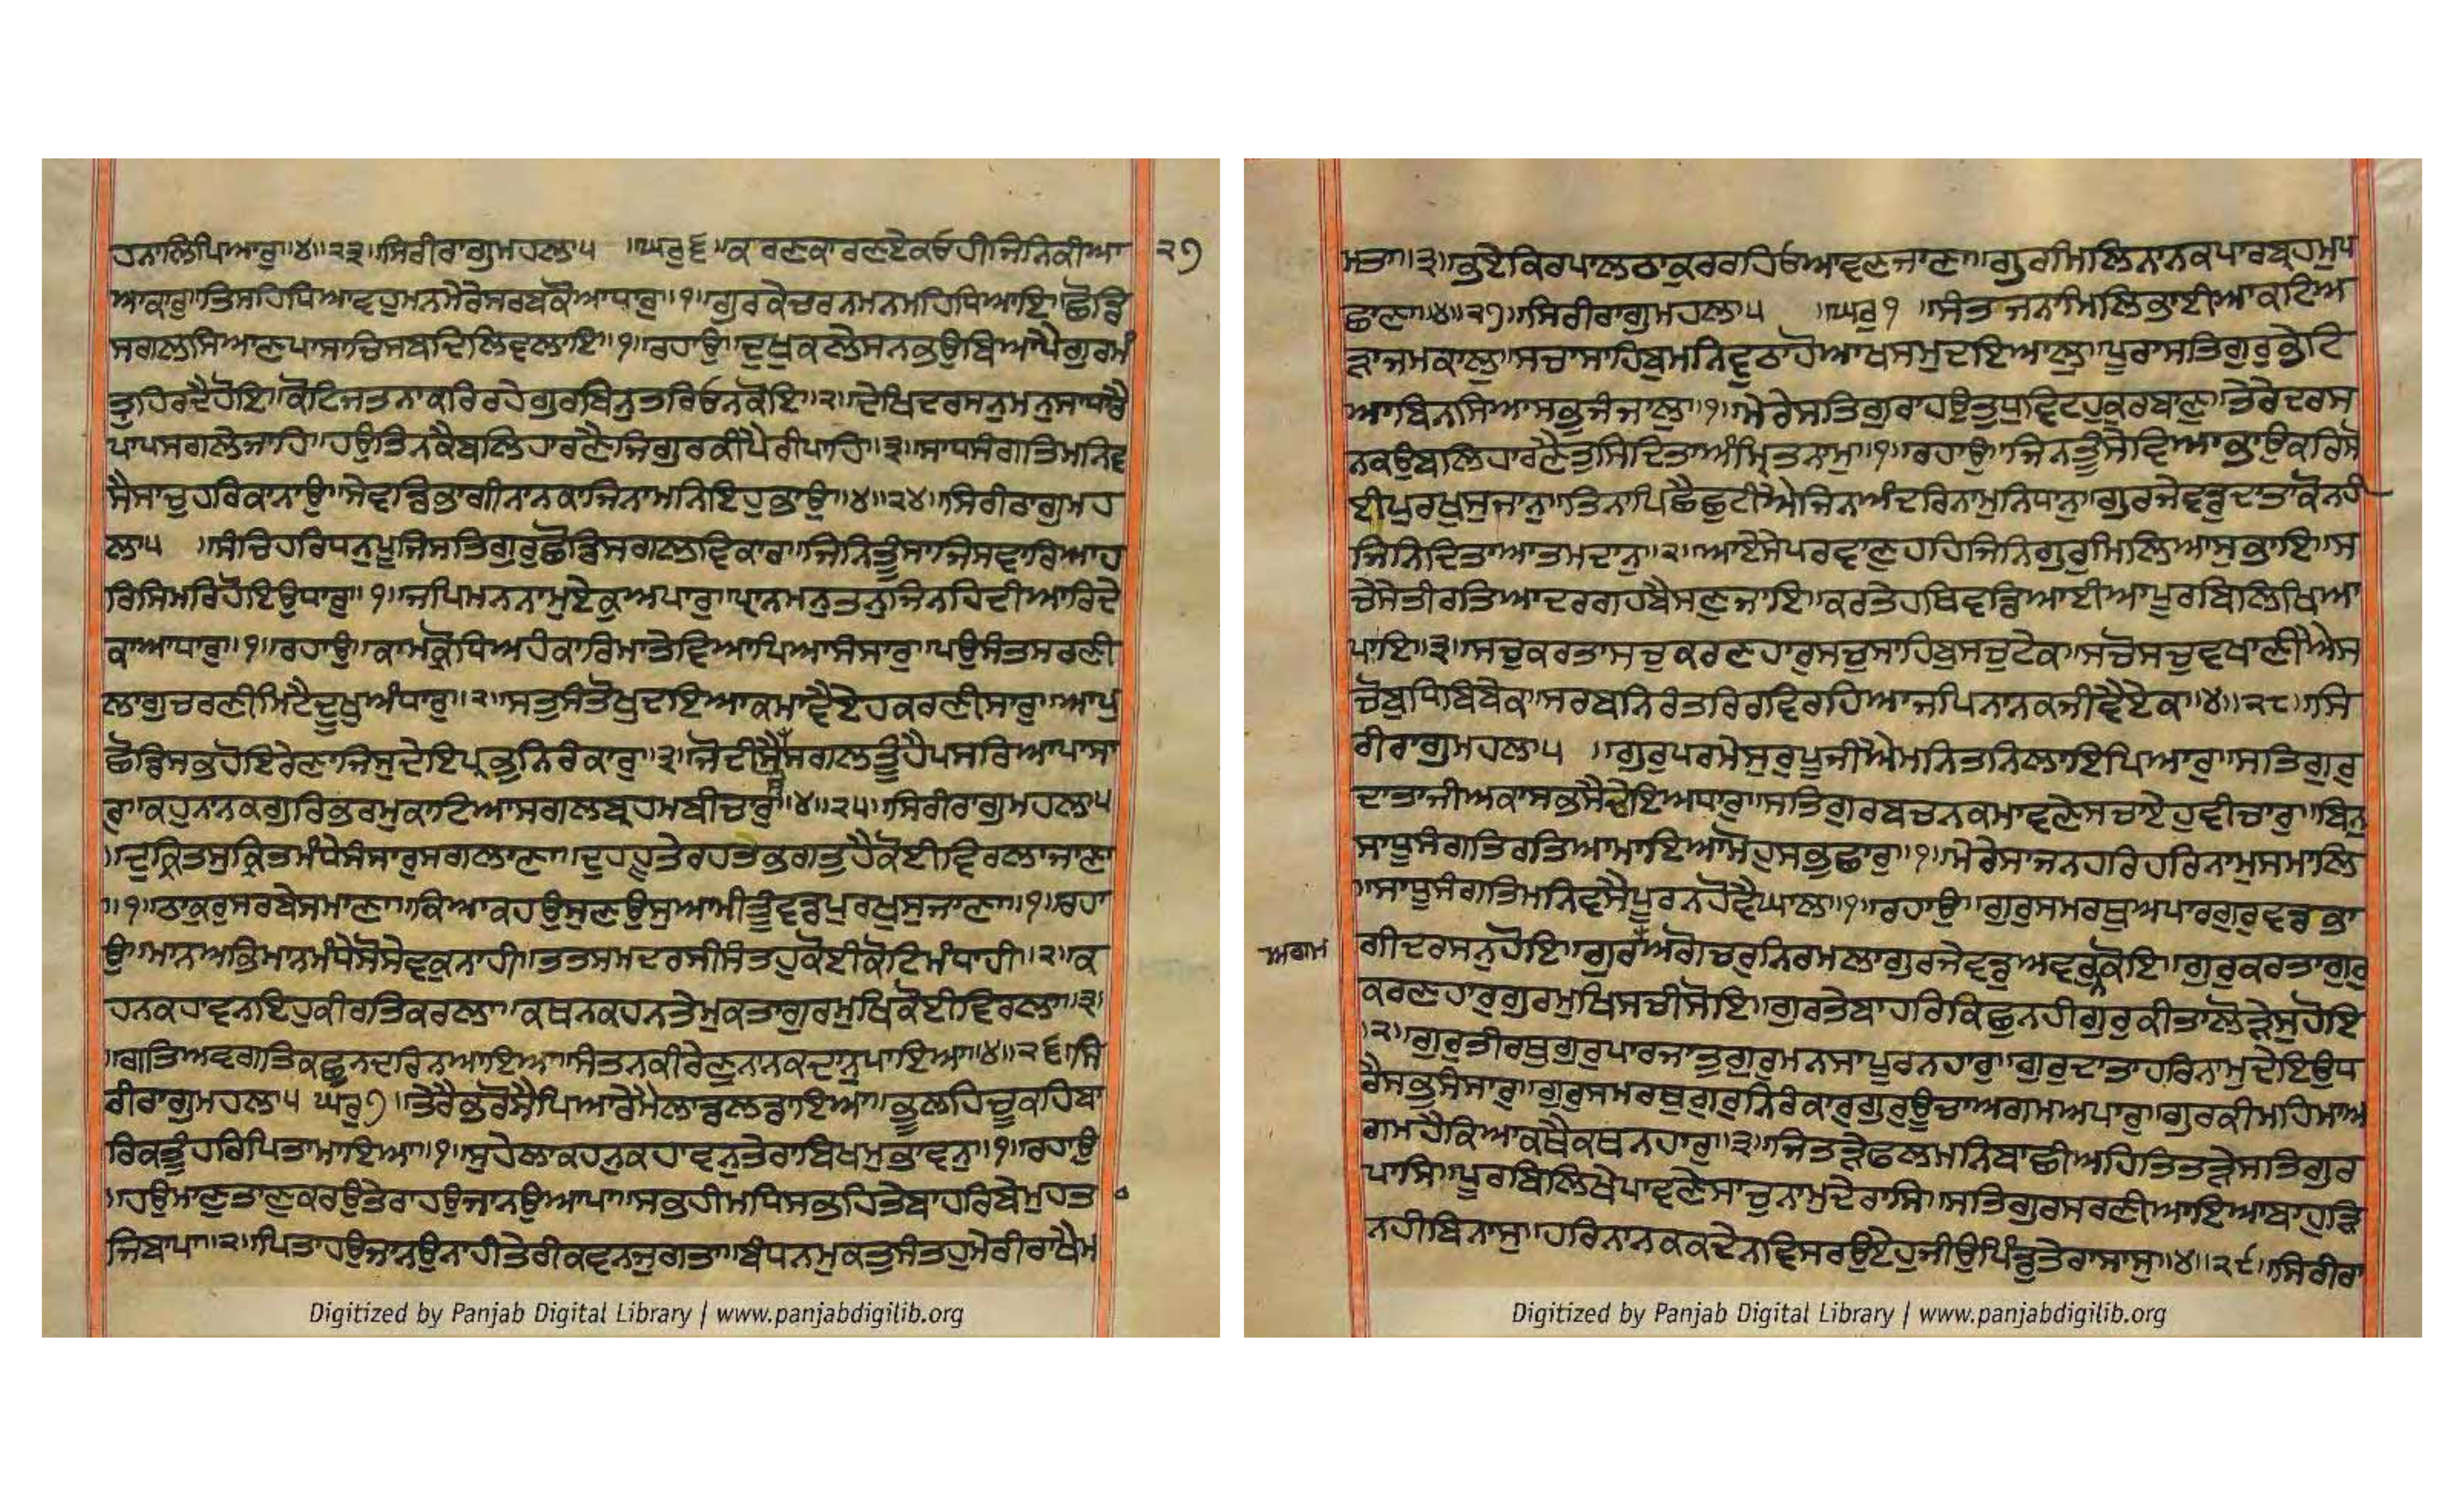 ਹਨਾਲਿਪਿਆਰੁ॥੪॥੨੩॥ਸਿਰੀਰਾਗੁਮਹਲਾ੫ ॥ਘਰੁ੬॥ਕਰਣਕਾਰਣਏਕਓਹੀਜਿਨਿਕੀਆ
੨੭
ਆਕਾਰੁ॥ਤਿਸਹਿਧਿਆਵਹੁਮਨਮੇਰੇਸਰਬਕੋਆਧਾਰੁ॥੧॥ਗੁਰਕੇਚਰਨਮਨਮਹਿਧਿਆਇ॥ਛੋਡਿ
ਸਗਲਸਿਆਣਪਾਸਾਚਿਸਬਦਿਲਿਵਲਾਇ॥੧॥ਰਹਾਉ॥ਦੁਖੁਕਲੇਸਨਭਉਬਿਆਪੈਗੁਰਮੰ
ਤ੍ਰੁਹਿਰਦੈਹੋਇ॥ਕੋਟਿਜਤਨਾਕਰਿਰਹੇਗੁਰਬਿਨੁਤਰਿਓਨਕੋਇ॥੨॥ਦੇਖਿਦਰਸਨੁਮਨੁਸਾਧਾਰੈ
ਪਾਪਸਗਲੇਜਾਹਿ॥ਹਉਤਿਨਕੈਬਲਿਹਾਰਣੈਜਿਗੁਰਕੀਪੈਰੀਪਾਹਿ॥੩॥ਸਾਧਸੰਗਤਿਮਨਿਵ
ਸੈਸਾਚੁਹਰਿਕਾਨਾਉ॥ਸੇਵਡਭਾਗੀਨਾਨਕਾਜਿਨਾਮਨਿਇਹੁਭਾਉ॥੪॥੨੪॥ਸਿਰੀਰਾਗੁਮਹ
ਲਾ੫ ॥ਸੰਚਿਹਰਿਧਨੁਪੂਜਿਸਤਿਗੁਰੁਛੋਡਿਸਗਲਵਿਕਾਰ॥ਜਿਨਿਤੂੰਸਾਜਿਸਵਾਰਿਆਹ
ਰਿਸਿਮਰਿਹੋਇਉਧਾਰੁ॥੧॥ਜਪਿਮਨਨਾਮੁਏਕੁਅਪਾਰੁ॥ਪ੍ਰਾਨਮਨੁਤਨੁਜਿਨਹਿਦੀਆਰਿਦੇ
ਕਾਆਧਾਰੁ॥੧॥ਰਹਾਉ॥ਕਾਮਕ੍ਰੋਧਿਅਹੰਕਾਰਿਮਾਤੇਵਿਆਪਿਆਸੰਸਾਰੁ॥ਪਉਸੰਤਸਰਣੀ
ਲਾਗੁਚਰਣੀਮਿਟੈਦੂਖੁਅੰਧਾਰੁ॥੨॥ਸਤੁਸੰਤੋਖੁਦਇਆਕਮਾਵੈਏਹਕਰਣੀਸਾਰੁ॥ਆਪੁ
ਛੋਡਿਸਭਹੋਇਰੇਣਾਜਿਸੁਦੇਇਪ੍ਰਭੁਨਿਰੰਕਾਰੁ॥੩॥ਜੋਦੀਸੈਸਗਲਤੂੰਹੈਪਸਰਿਆਪਾਸਾ
ਰੁ॥ਕਹੁਨਾਨਕਗੁਰਿਭਰਮੁਕਾਟਿਆਸਗਲਬ੍ਰਹਮਬੀਚਾਰੁ॥੪॥੨੫॥ਸਿਰੀਰਾਗੁਮਹਲਾ੫
॥ਦੁਕ੍ਰਿਤਸੁਕ੍ਰਿਤਮੰਧੇਸੰਸਾਰੁਸਗਲਾਣਾ॥ਦੁਹਹੂੰਤੇਰਹਤਭਗਤੁਹੈਕੋਈਵਿਰਲਾਜਾਣਾ
॥੧॥ਠਾਕੁਰਸਰਬੇਸਮਾਣਾ॥ਕਿਆਕਹਉਸੁਣਉਸੁਆਮੀਤੂੰਵਡਪੁਰਖੁਸੁਜਾਣਾ॥੧॥ਰਹਾ
ਉ॥ਮਾਨਅਭਿਮਾਨਮੰਧੇਸੋਸੇਵਕੁਨਾਹੀ॥ਤਤਸਮਦਰਸੀਸੰਤਹੁਕੋਈਕੋਟਿਮੰਧਾਹੀ॥੨॥ਕ
ਹਨਕਹਾਵਨਇਹੁਕੀਰਤਿਕਰਲਾ॥ਕਥਨਕਹਨਤੇਮੁਕਤਾਗੁਰਮੁਖਿਕੋਈਵਿਰਲਾ॥੩॥
॥ਗਤਿਅਵਗਤਿਕਛੁਨਦਰਿਨਆਇਆ॥ਸੰਤਨਕੀਰੇਣੁਨਾਨਕਦਾਨੁਪਾਇਆ॥੪॥੨੬॥ਸਿ
ਰੀਰਾਗੁਮਹਲਾ੫ ਘਰੁ੭॥ਤੇਰੈਭਰੋਸੈਪਿਆਰੇਮੈਲਾਡਲਡਾਇਆ॥ਭੂਲਹਿਚੂਕਹਿਬਾ
ਰਿਕਤੂੰਹਰਿਪਿਤਾਮਾਇਆ॥੧॥ਸੁਹੇਲਾਕਹਨੁਕਹਾਵਨੁਤੇਰਾਬਿਖਮੁਭਾਵਨੁ॥੧॥ਰਹਾਉ
॥ਹਉਮਾਣੁਤਾਣੁਕਰਉਤੇਰਾਹਉਜਾਨਉਆਪਾ॥ਸਭਹੀਮਧਿਸਭਹਿਤੇਬਾਹਰਿਬੇਮੁਹਤ
ਜਿਬਾਪਾ॥੨॥ਪਿਤਾਹਉਜਾਨਉਨਾਹੀਤੇਰੀਕਵਨਜੁਗਤਾ॥ਬੰਧਨਮੁਕਤੁਸੰਤਹੁਮੇਰੀਰਾਖੈਮ
ਮਤਾ॥੩॥ਭਏਕਿਰਪਾਲਠਾਕੁਰਰਹਿਓਆਵਣਜਾਣਾ॥ਗੁਰਮਿਲਿਨਾਨਕਪਾਰਬ੍ਰਹਮੁਪ
ਛਾਣਾ॥੪॥੨੭॥ਸਿਰੀਰਾਗੁਮਹਲਾ੫ ॥ਘਰੁ੧ ॥ਸੰਤਜਨਾਮਿਲਿਭਾਈਆਕਟਿਅ
ੜਾਜਮਕਾਲੁ॥ਸਚਾਸਾਹਿਬੁਮਨਿਵੁਠਾਹੋਆਖਸਮੁਦਇਆਲੁ॥ਪੂਰਾਸਤਿਗੁਰੁਭੇਟਿ
ਆਬਿਨਸਿਆਸਭੁਜੰਜਾਲੁ॥੧॥ਮੇਰੇਸਤਿਗੁਰਾਹਉਤੁਧੁਵਿਟਹੁਕੁਰਬਾਣੁ॥ਤੇਰੇਦਰਸ
ਨਕਉਬਲਿਹਾਰਣੈਤੁਸਿਦਿਤਾਅੰਮ੍ਰਿਤਨਾਮੁ॥੧॥ਰਹਾਉ॥ਜਿਨਤੂੰਸੇਵਿਆਭਾਉਕਰਿਸੇ
ਈਪੁਰਖਸੁਜਾਨ॥ਤਿਨਾਪਿਛੈਛੁਟੀਐਜਿਨਅੰਦਰਿਨਾਮੁਨਿਧਾਨੁ॥ਗੁਰਜੇਵਡੁਦਾਤਾਕੋਨਹੀ
ਜਿਨਿਦਿਤਾਆਤਮਦਾਨੁ॥੨॥ਆਏਸੇਪਰਵਾਣੁਹਹਿਜਿਨਿਗੁਰੁਮਿਲਿਆਸੁਭਾਇ॥ਸ
ਚੇਸੇਤੀਰਤਿਆਦਰਗਹਬੈਸਣੁਜਾਇ॥ਕਰਤੇਹਥਿਵਡਿਆਈਆਪੂਰਬਿਲਿਖਿਆ
ਪਾਇ॥੩॥ਸਚੁਕਰਤਾਸਚੁਕਰਣਹਾਰੁਸਚੁਸਾਹਿਬੁਸਚੁਟੇਕ॥ਸਚੋਸਚੁਵਖਾਣੀਐਸ
ਚੋਬੁਧਿਬਿਬੇਕ॥ਸਰਬਨਿਰੰਤਰਿਰਵਿਰਹਿਆਜਪਿਨਾਨਕਜੀਵੈਏਕ॥੪॥੨੮॥ਸਿ
ਰੀਰਾਗੁਮਹਲਾ੫ ॥ਗੁਰੁਪਰਮੇਸੁਰੁਪੂਜੀਐਮਨਿਤਨਿਲਾਇਪਿਆਰੁ॥ਸਤਿਗੁਰੁ
ਦਾਤਾਜੀਅਕਾਸਭਸੈਦੇਇਅਧਾਰੁ॥ਸਤਿਗੁਰਬਚਨਕਮਾਵਣੇਸਚਾਏਹੁਵੀਚਾਰੁ॥ਬਿਨੁ
ਸਾਧੂਸੰਗਤਿਰਤਿਆਮਾਇਆਮੋਹੁਸਭੁਛਾਰੁ॥੧॥ਮੇਰੇਸਾਜਨਹਰਿਹਰਿਨਾਮੁਸਮਾਲਿ
॥ਸਾਧੂਸੰਗਤਿਮਨਿਵਸੈਪੂਰਨਹੋਵੈਘਾਲ॥੧॥ਰਹਾਉ॥ਗੁਰੁਸਮਰਥੁਅਪਾਰੁਗੁਰੁਵਡਭਾ
ਅਗਮ
ਗੀਦਰਸਨੁਹੋਇ॥ਗੁਰੁਅਗੋਚਰੁਨਿਰਮਲਾਗੁਰਜੇਵਡੁਅਵਰੁਨਕੋਇ॥ਗੁਰੁਕਰਤਾਗੁਰੁ
ਕਰਣਹਾਰੁਗੁਰਮੁਖਿਸਚੀਸੋਇ॥ਗੁਰਤੇਬਾਹਰਿਕਿਛੁਨਹੀਗੁਰੁਕੀਤਾਲੋੜੇਸੁਹੋਇ
॥੨॥ਗੁਰੁਤੀਰਥੁਗੁਰੁਪਾਰਜਾਤੁਗੁਰੁਮਨਸਾਪੂਰਨਹਾਰੁ॥ਗੁਰੁਦਾਤਾਹਰਿਨਾਮੁਦੇਇਉਧ
ਰੈਸਭੁਸੰਸਾਰੁ॥ਗੁਰੁਸਮਰਥੁਗੁਰੁਨਿਰੰਕਾਰੁਗੁਰੁਊਚਾਅਗਮਅਪਾਰੁ॥ਗੁਰਕੀਮਹਿਮਾਅ
ਗਮਹੈਕਿਆਕਥੈਕਥਨਹਾਰੁ॥੩॥ਜਿਤੜੇਫਲਮਨਿਬਾਛੀਅਹਿਤਿਤੜੇਸਤਿਗੁਰ
ਪਾਸਿ॥ਪੂਰਬਿਲਿਖੇਪਾਵਣੇਸਾਚੁਨਾਮੁਦੇਰਾਸਿ॥ਸਤਿਗੁਰਸਰਣੀਆਇਆਬਾਹੁੜਿ
ਨਹੀਬਿਨਾਸੁ॥ਹਰਿਨਾਨਕਕਦੇਨਵਿਸਰਉਏਹੁਜੀਉਪਿੰਡੁਤੇਰਾਸਾਸੁ॥੪॥੨੯॥ਸਿਰੀਰਾ
Digitized by Panjab Digital Library | www.panjabdigilib.org
Digitized by Panjab Digital Library | www.panjabdigilib.org